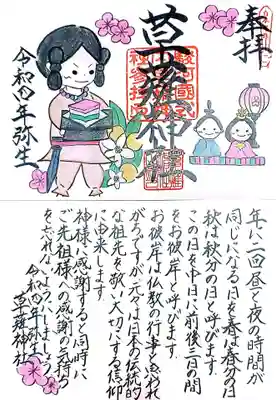 奉拝
草薙神社
令和四年弥生
年に二回昼と夜の時間が
同じになる日を春は春分の日
秋は秋分の日と呼びます。
この日を中日に前後三日の間
をお彼岸と呼びます。
お彼岸は仏教の行事と思われ
がちですが、元々は日本の伝統的
な祖先を敬い大切にする信仰
に由来します。
神様へ感謝すると同時に
ご先祖様への感謝の気持ち
を忘れないようにしましょう。
令和四年弥生
草薙神社